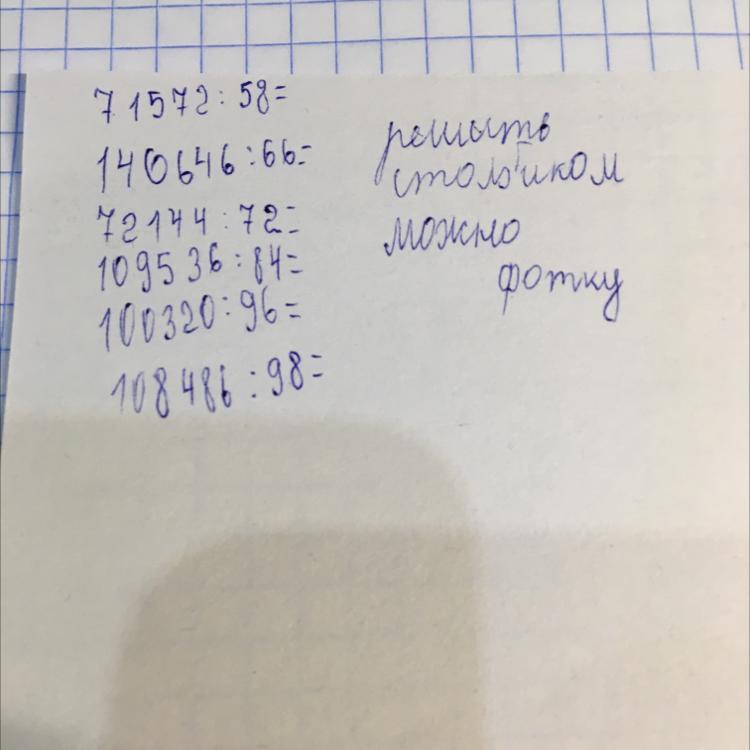 71572:58=
140646:66=
72144:72=
109536:84=
100320:96=
108486:98=
решыть
столбиком
можно
фотку